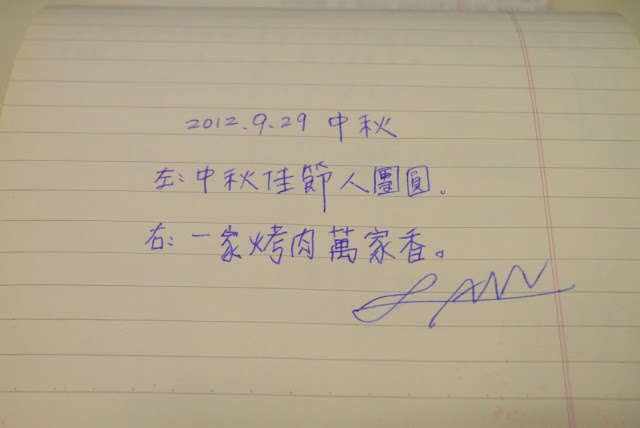 2012.9.29 中秋
左:中秋佳節人團圓.
右:一家烤肉萬家香。